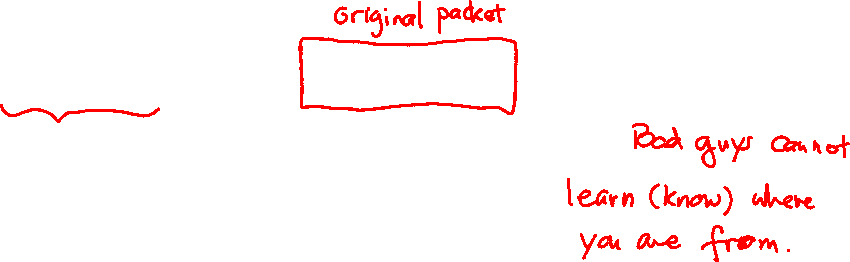 Original packet
Bad guys cannot
learn (know) where
you are from.